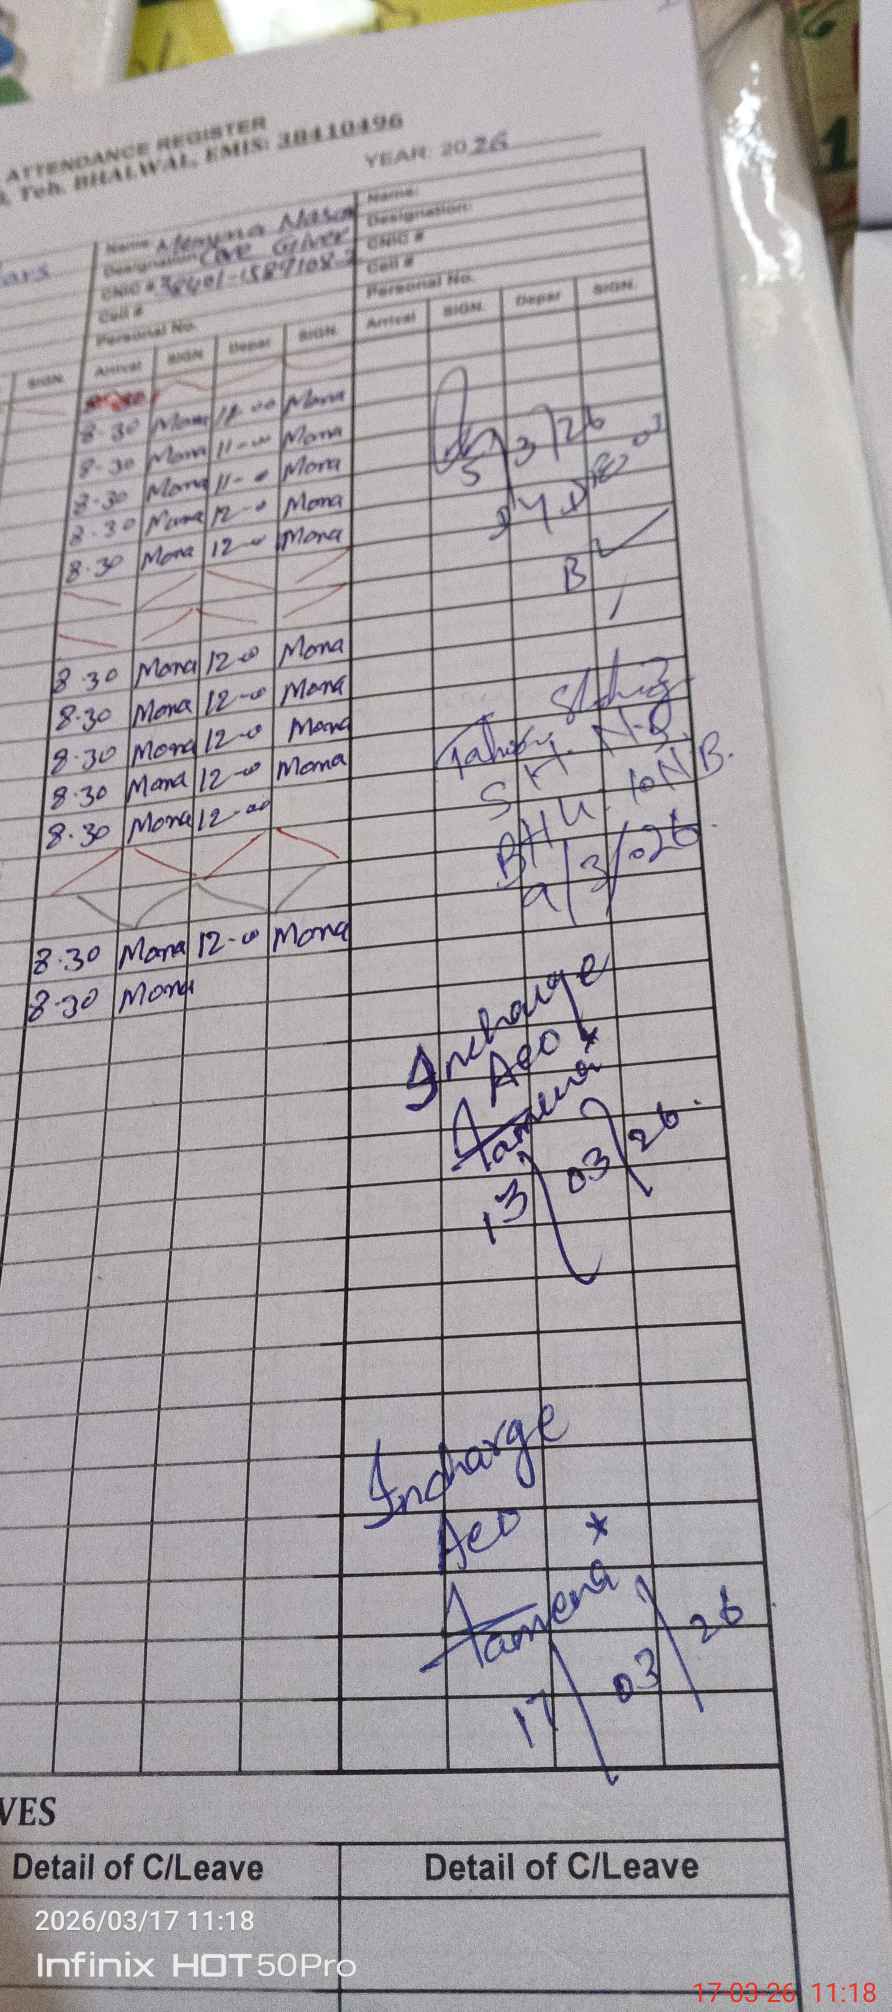 ATTENDANCE REGISTER
Teh. BHALWAL, EMIS: 38410496
YEAR: 2026
Name:
Designation: Care Giver
CNIC #
Cell #
Personal No.
Name:
Designation:
CNIC #
Cell #
Personal No.
SIGN. Arrival SIGN. Depar SIGN. Arrival SIGN. Depar SIGN.
8-30 Mona 11-00 Mona
8-30 Mona 11-00 Mona
8-30 Mona 11-0 Mona
8-30 Mona 12-0 Mona
8-30 Mona 12-00 Mona
5/3/26
B
8-30 Mona 12-00 Mona
8-30 Mona 12-00 Mona
8-30 Mona 12-0 Mona
8-30 Mona 12-00 Mona
8-30 Mona 12-00
S.H.N.S.
BHU. 10NB.
9/3/026.
8-30 Mona 12-00 Mona
8-30 Mona
Incharge
Aeo *
Aamena
13/03/26.
Incharge
Aeo *
Aamena
17/03/26
VES
Detail of C/Leave Detail of C/Leave
2026/03/17 11:18
Infinix HOT 50Pro
17-03-26 11:18